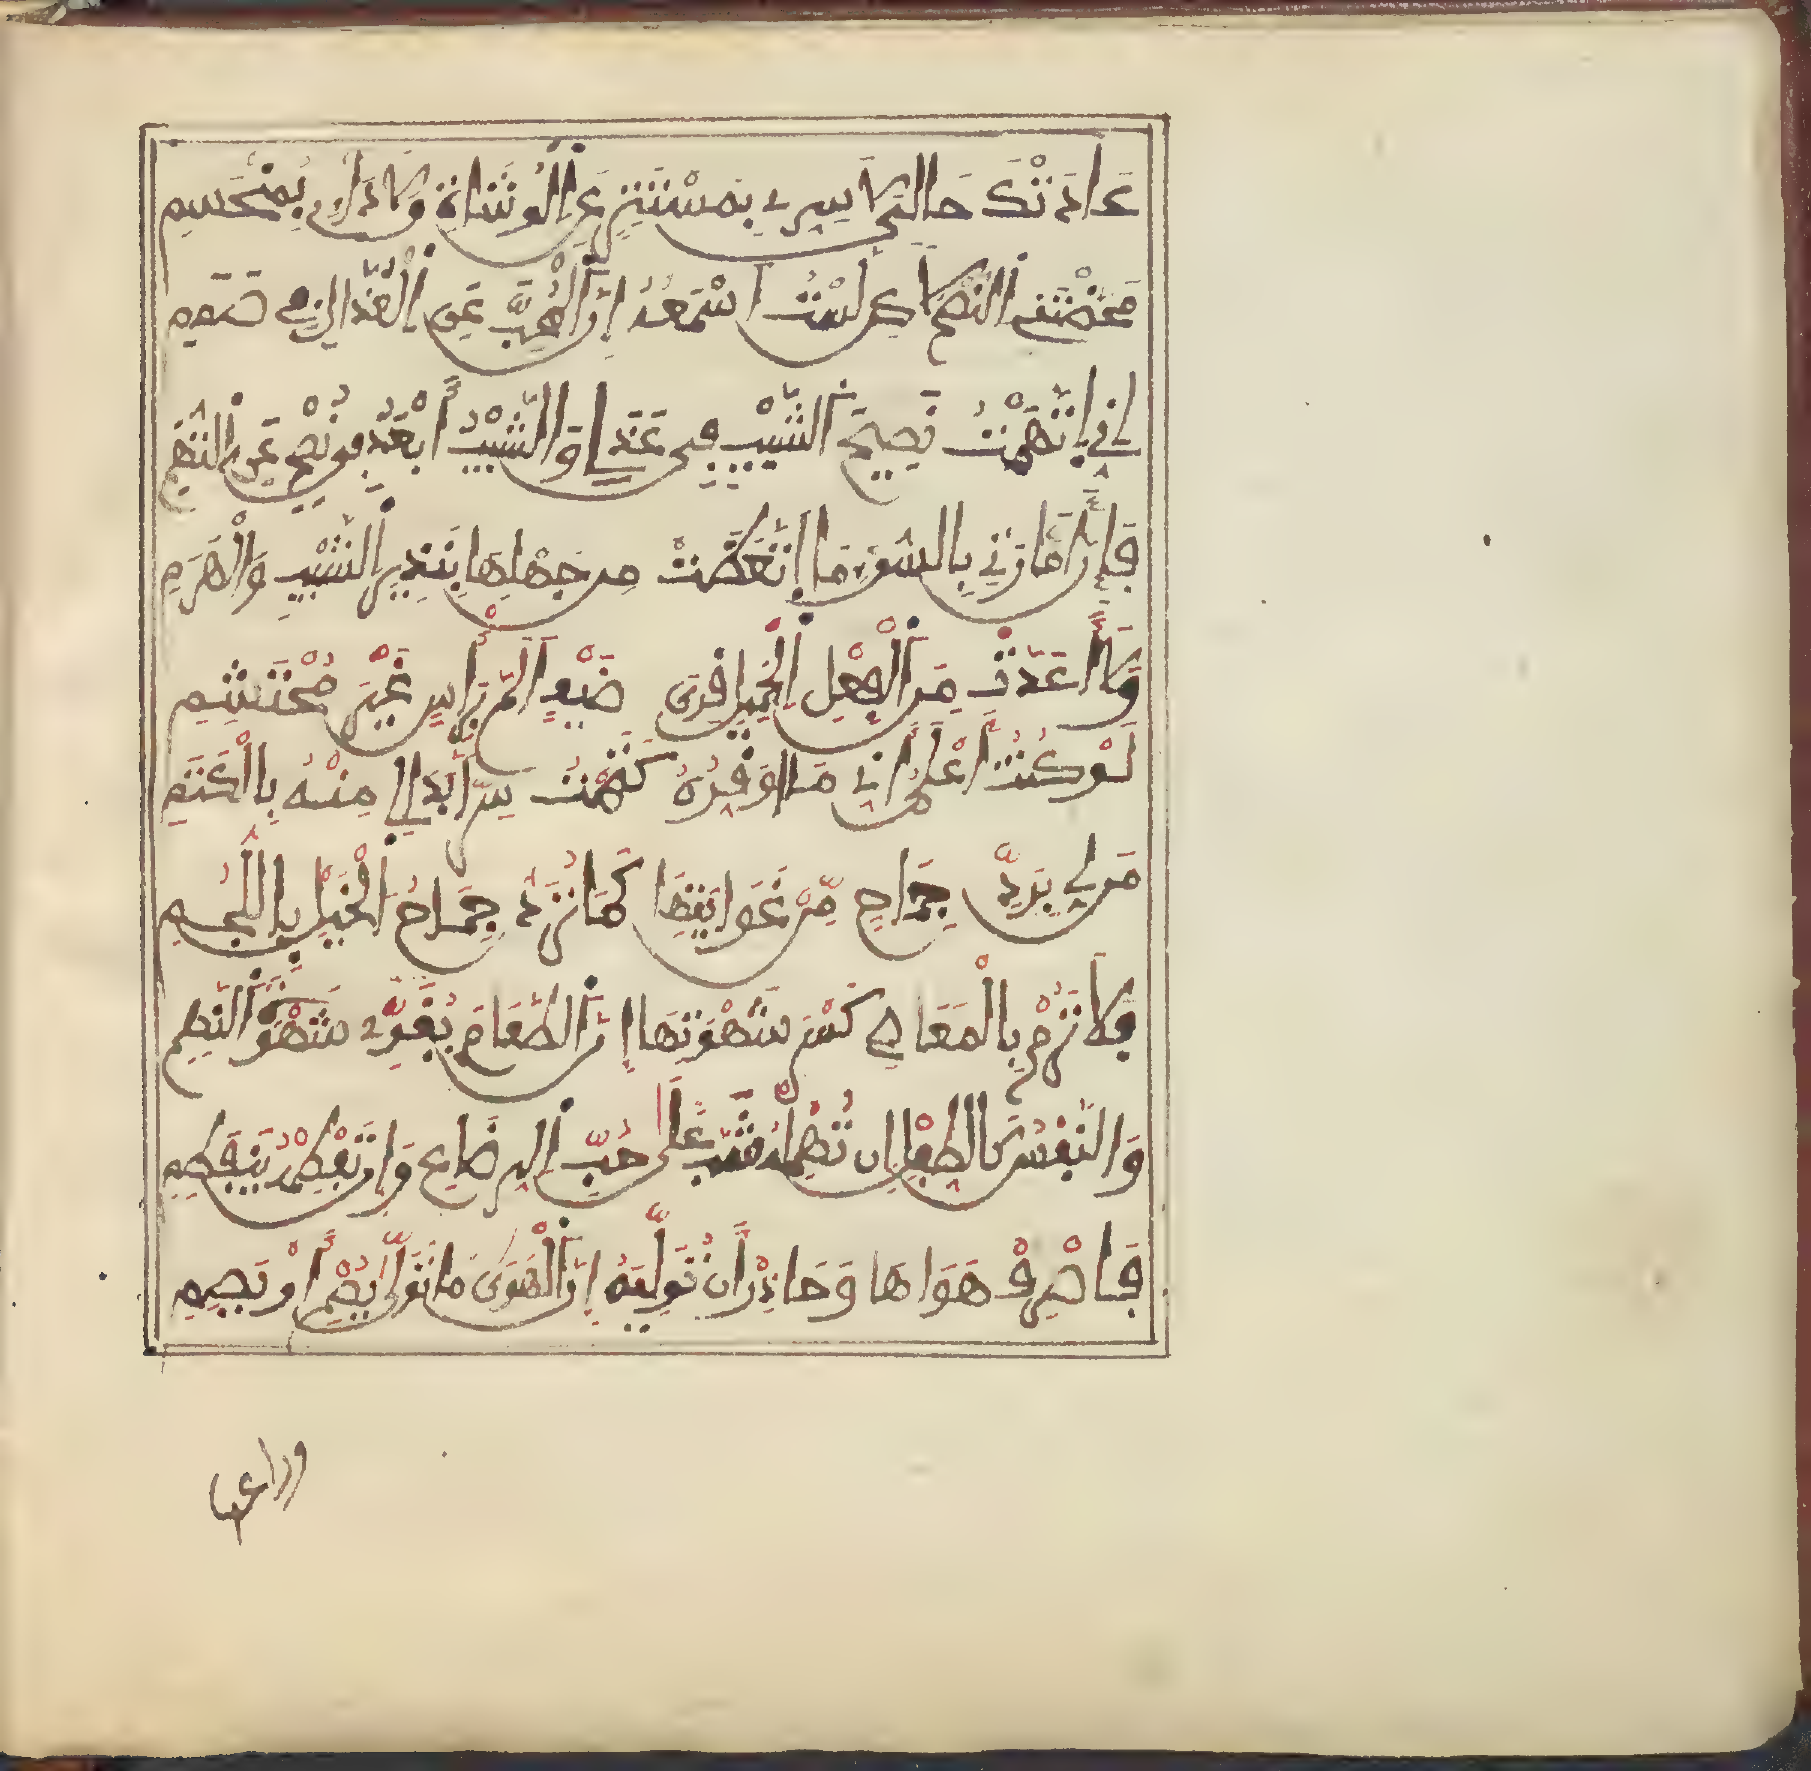 عَادَتْكَ حَالِىَ لَا سِرِّے بِمُسْتَتِرٍ عَنِ الْوُشَاةِ وَلَا دَاءِے بِمُنْحَسِمِ
مَحَضْتَنِے النُّصْحَ لَاكِن لَسْتُ اَسْمَعُهُ إِنَّ الْمُحِبَّ عَنِ الْعُذَّالِ فِے صَمَمِ
إِنِّے اِتَّهَمْتُ نَصِيحَ الشَّيْبِ فِى عَذَلِے وَالشَّيْبُ أَبْعَدُ فِے نُصْحٍ عَنِ التُّهَمِ
فَإِنَّ أَمَّارَتِے بِالسُّوءِ مَا اِتَّعَظَتْ مِن جَهْلِهَا بِنَذِيرِ الشَّيْبِ وَالْهَرَمِ
وَلَا أَعَدَّتْ مِنَ الْفِعْلِ الْجَمِيلِ قِرَى ضَيْفٍ اَلَمَّ بِرَأْسِے غَيْرَ مُحْتَشِمِ
لَوْ كُنْتُ أَعْلَمُ أَنِّے مَا أُوَقِّرُهُ كَتَمْتُ سِرّاً بَدَا لِے مِنْهُ بِالْكَتَمِ
مَن لِے بِرَدِّ جِمَاحٍ مِّنْ غَوَايَتِهَا كَمَا يُرَدُّ جِمَاحُ الْخَيْلِ بِاللُّجُمِ
فَلَا تَرُمْ بِالْمَعَاصِے كَسْرَ شَهْوَتِهَا إِنَّ الطَّعَامَ يُقَوِّے شَهْوَةَ النَّهِمِ
وَالنَّفْسُ كَالطِّفْلِ إِن تُهْمِلْهُ شَبَّ عَلَى حُبِّ الرِّضَاعِ وَإِن تَفْطِمْهُ يَنفَطِمِ
فَاصْرِفْ هَوَاهَا وَحَاذِرْ أَن تُوَلِّيَهُ إِنَّ الْهَوَى مَا تَوَلَّى يُصْمِ أَوْ يَصِمِ
وراعها